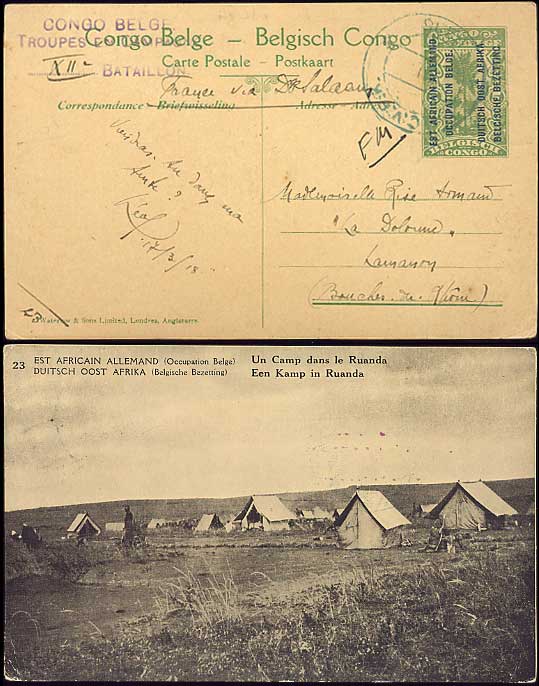 CONGO BELGE
TROUPES EN CAMPAGNE
XIIe BATAILLON
Congo Belge – Belgisch Congo
Carte Postale – Postkaart
France via D. Salaam
Correspondance - Briefwisseling
Adresse - Adres
EST AFRICAIN ALLEMAND.
OCCUPATION BELGE.
DUITSCH OOST AFRIKA.
BELGISCHE BEZETTING.
BELGISCH
CONGO
C.V.P.
FM
tente ?
17/3/18
Mademoiselle Rose
"La
Lamanon
(Bouches du Rhône)
23
Waterlow & Sons Limited, Londres, Angleterre.
23 EST AFRICAIN ALLEMAND (Occupation Belge) Un Camp dans le Ruanda
DUITSCH OOST AFRIKA (Belgische Bezetting) Een Kamp in Ruanda